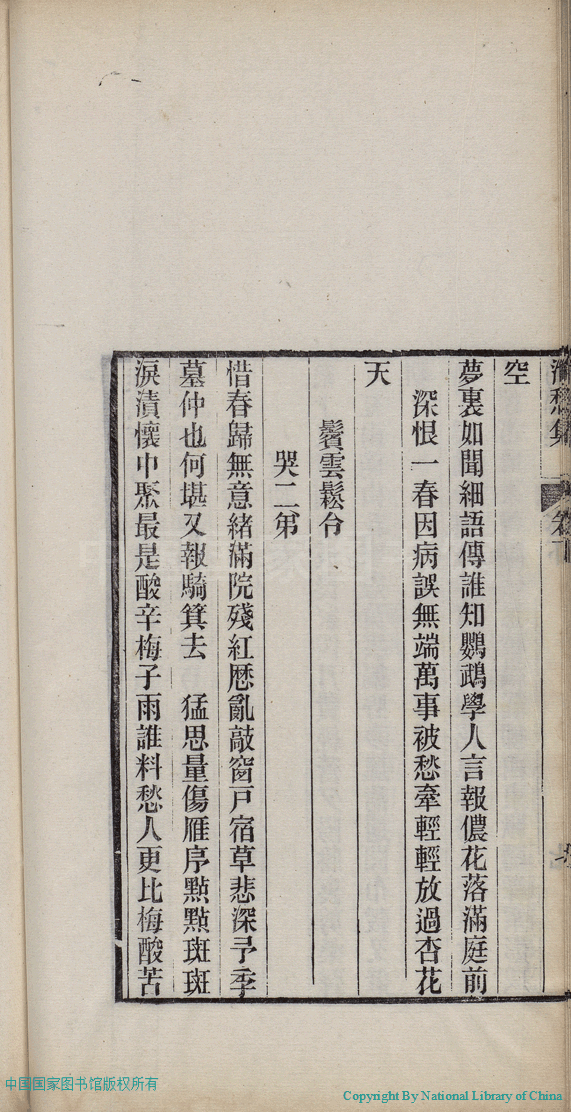 空
夢裏如聞細語傳誰知鸚鵡學人言報儂花落滿庭前
深恨一春因病誤無端萬事被愁牽輕輕放過杏花
天
鬢雲鬆令
哭二弟
惜春歸無意緒滿院殘紅歷亂敲窗戶宿草悲深予季
墓仲也何堪又報騎箕去　猛思量傷雁序點點斑斑
淚漬懷中聚最是酸辛梅子雨誰料愁人更比梅酸苦
中国国家图书馆版权所有
Copyright By National Library of China